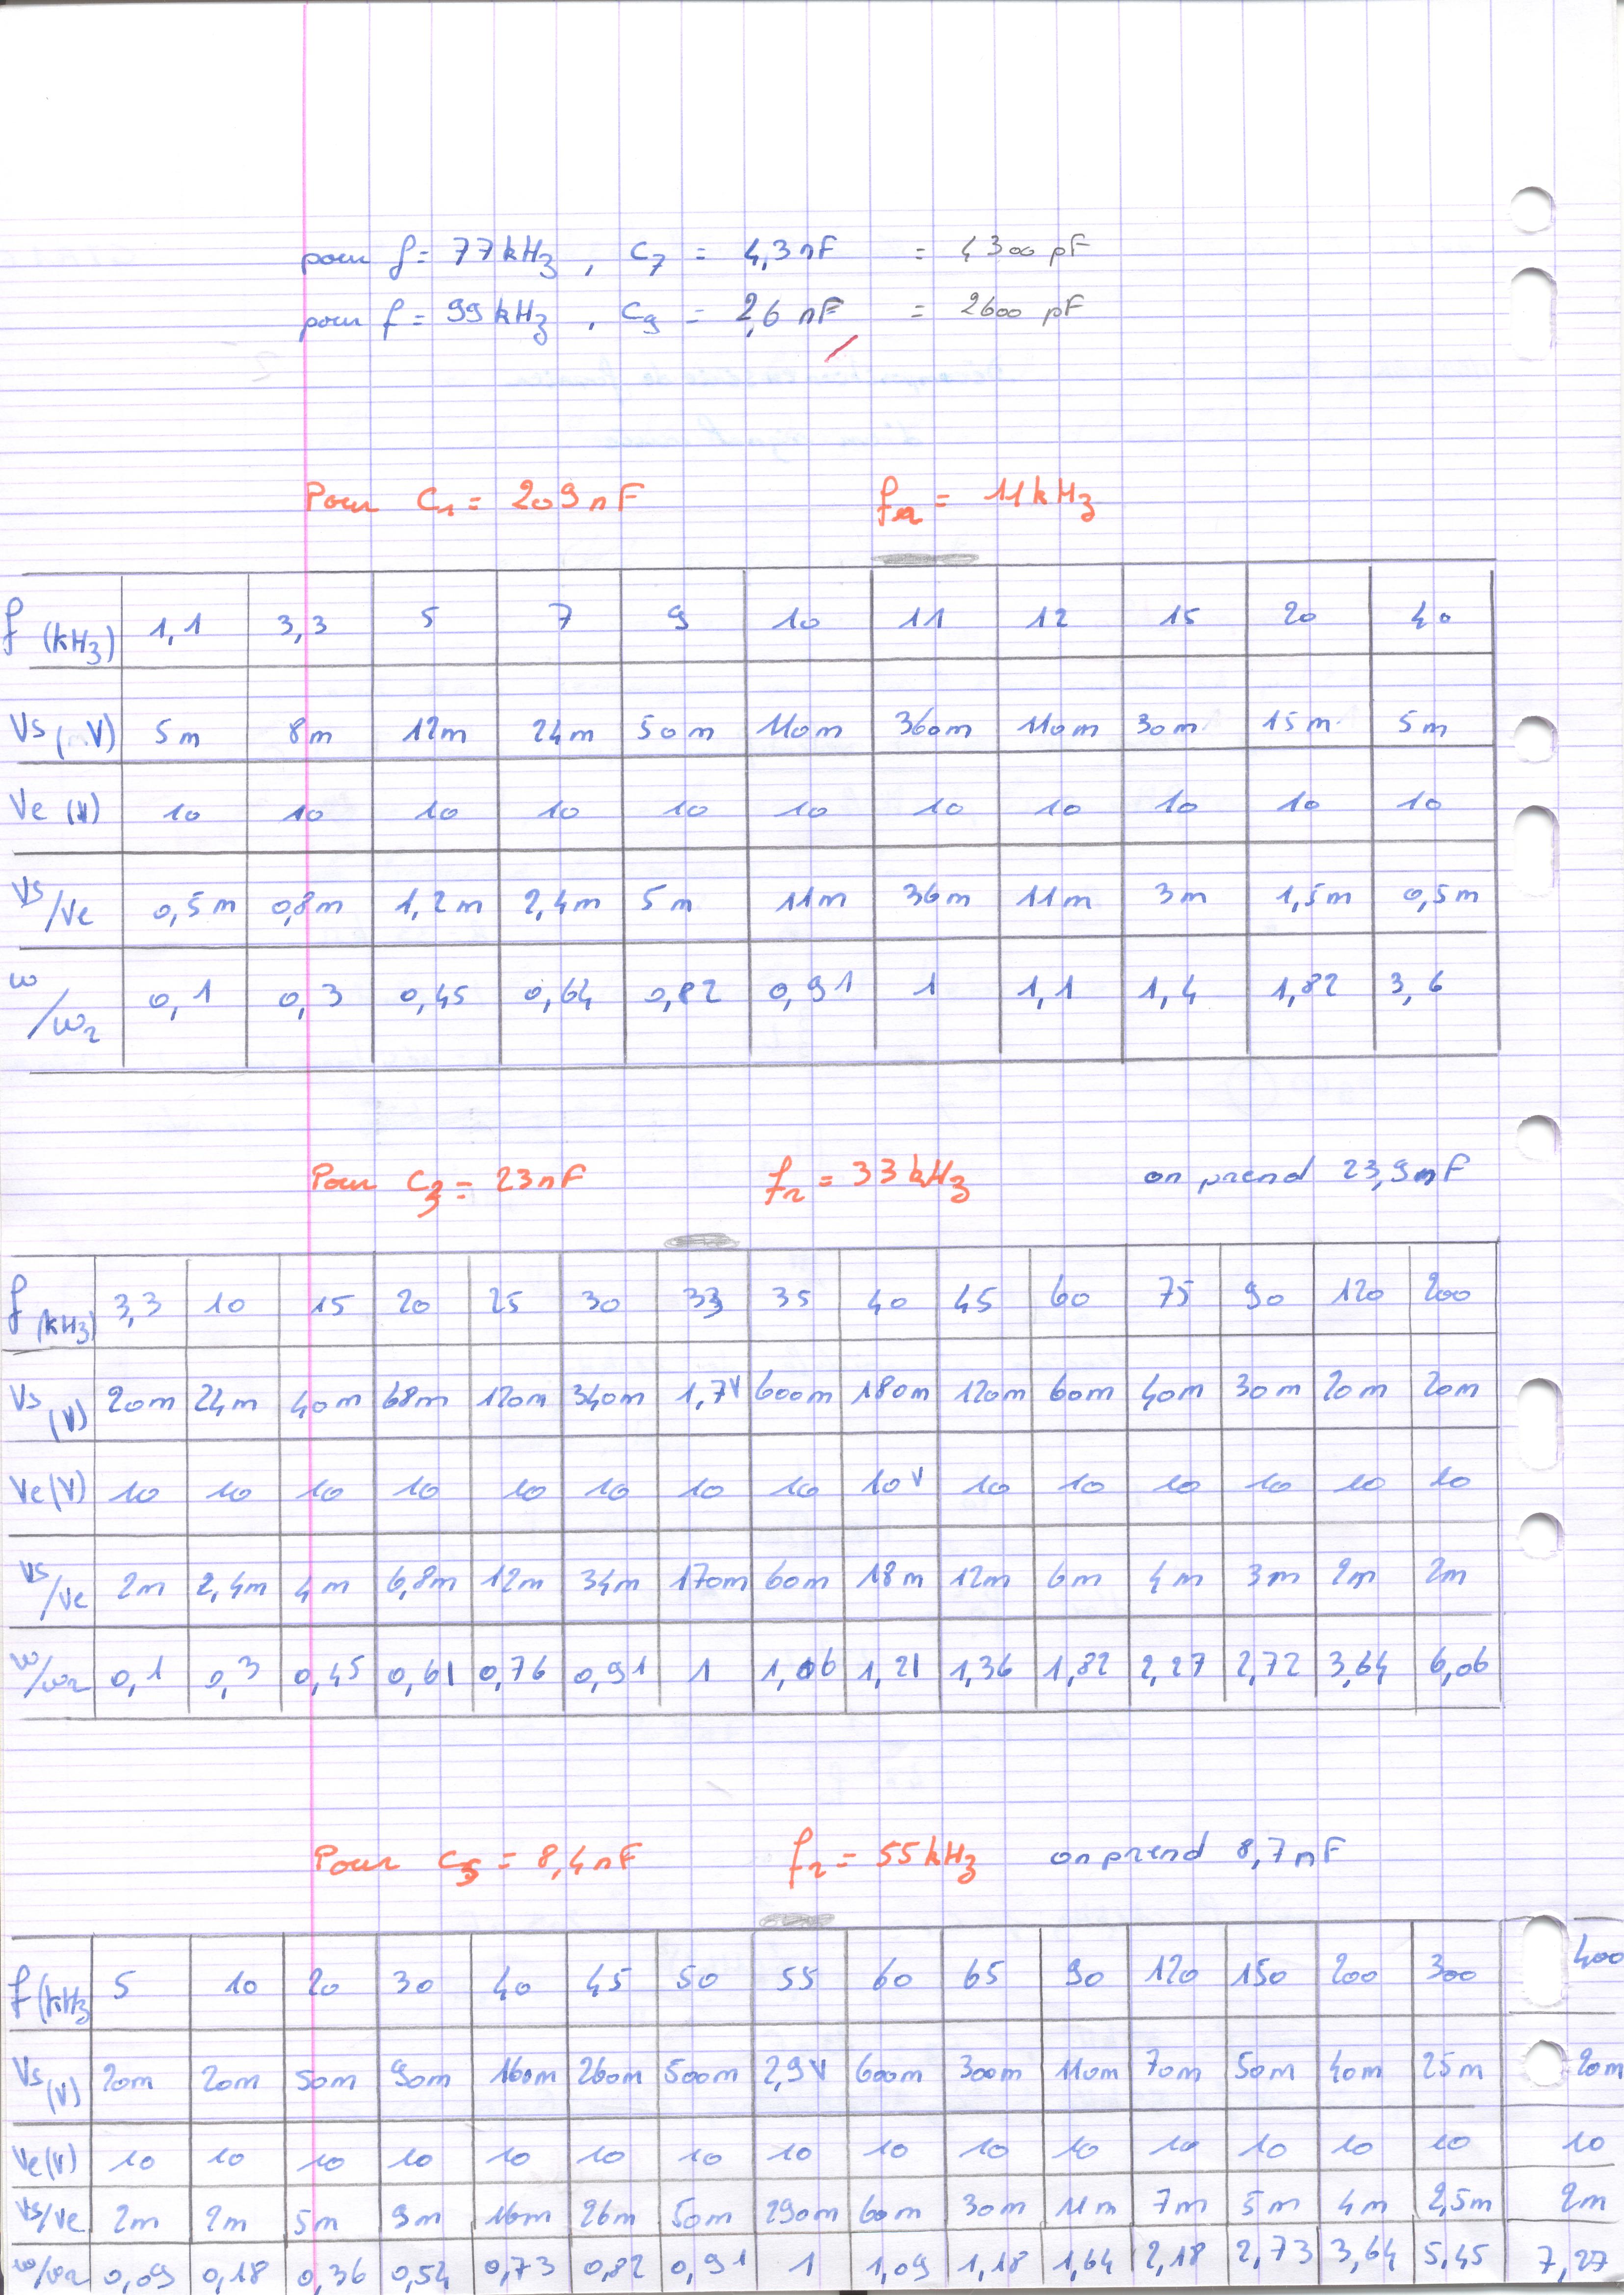 pour f = 77 kHz , C7 = 4,3 nF = 4300 pF
pour f = 99 kHz , C9 = 2,6 nF = 2600 pF
Pour C1 = 209 nF fr = 11 kHz
f (kHz) 1,1 3,3 5 7 9 10 11 12 15 20 40
Vs (mV) 5m 8m 12m 24m 50m 110m 360m 110m 30m 15m 5m
Ve (V) 10 10 10 10 10 10 10 10 10 10 10
Vs/Ve 0,5m 0,8m 1,2m 2,4m 5m 11m 36m 11m 3m 1,5m 0,5m
ω/ωr 0,1 0,3 0,45 0,64 0,82 0,91 1 1,1 1,4 1,82 3,6
Pour C3 = 23 nF fr = 33 kHz on prend 23,9 nF
f (kHz) 3,3 10 15 20 25 30 33 35 40 45 60 75 90 120 200
Vs (V) 20m 24m 40m 68m 120m 340m 1,7V 600m 180m 120m 60m 40m 30m 20m 20m
Ve (V) 10 10 10 10 10 10 10 10 10V 10 10 10 10 10 10
Vs/Ve 2m 2,4m 4m 6,8m 12m 34m 170m 60m 18m 12m 6m 4m 3m 2m 2m
ω/ωr 0,1 0,3 0,45 0,61 0,76 0,91 1 1,06 1,21 1,36 1,82 2,27 2,72 3,64 6,06
Pour C5 = 8,4 nF fr = 55 kHz on prend 8,7 nF
f (kHz 5 10 20 30 40 45 50 55 60 65 90 120 150 200 300 400
Vs (V) 20m 20m 50m 90m 160m 260m 500m 2,9V 600m 300m 110m 70m 50m 40m 25m 20m
Ve (V) 10 10 10 10 10 10 10 10 10 10 10 10 10 10 10 10
Vs/Ve 2m 2m 5m 9m 16m 26m 50m 290m 60m 30m 11m 7m 5m 4m 2,5m 2m
ω/ωr 0,09 0,18 0,36 0,54 0,73 0,82 0,91 1 1,09 1,18 1,64 2,18 2,73 3,64 5,45 7,27